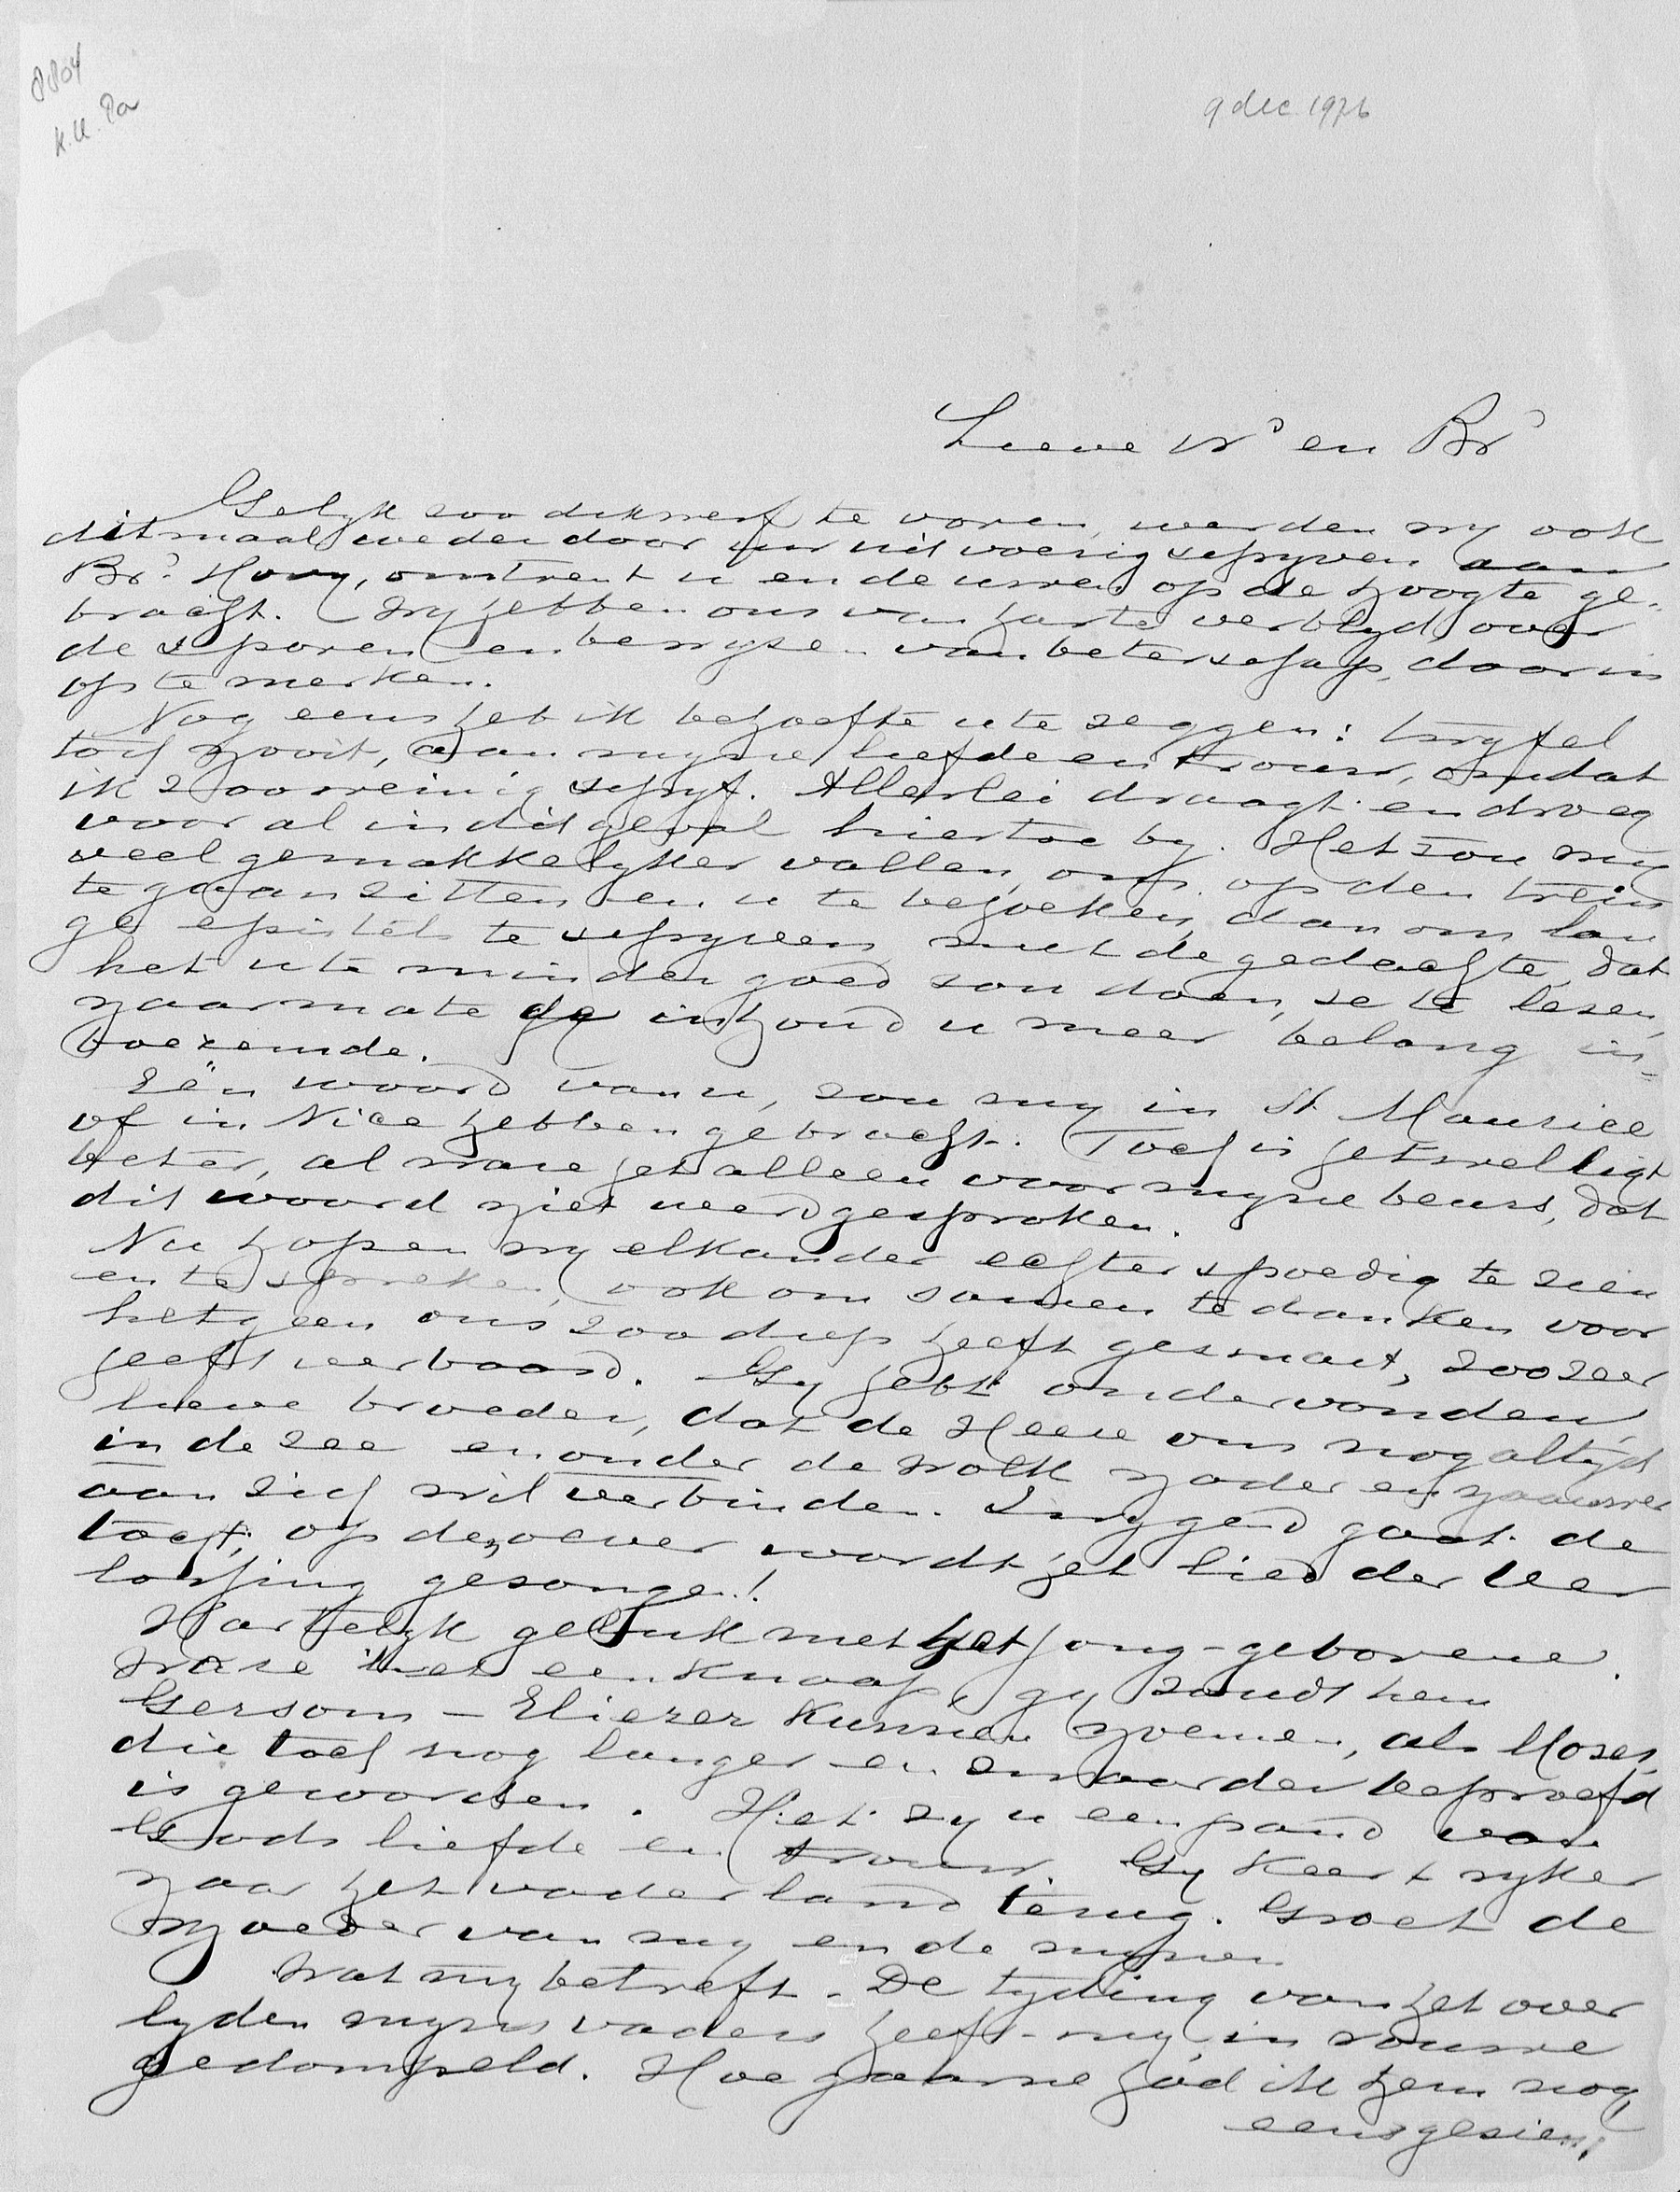 8804
K.U. Pa
9 dec 1976
Lieve Vr. en Br.
Gelyk zoo dikwerf te voren, werden wy ook
ditmaal weder door uw uitvoerig schryven aan
Br. Hovy, omtrent u en de uwen op de hoogte ge-
bracht. Wy hebben ons van harte verblyd over
de sporen en bewyzen van beterschap, daarin
op te merken.
Nog eens heb ik behoefte u te zeggen: twyfel
toch nooit, aan myne liefde en trouw, omdat
ik zoo weinig schryf. Allerlei draagt en droeg
vooral in dit geval hiertoe by. Het zou my
veel gemakkelyker vallen, om op den trein
te gaan zitten en u te bezoeken, dan om lan
ge epistels te schryven, met de gedachte, dat
het u te minder goed zou doen, ze te lezen,
naarmate de inhoud u meer belang in-
boezemde.
Eén woord van u, zou my in St Maurice
of in Nice hebben gebracht. Toch is het wellicht
beter, al ware het alleen voor myne beurs, dat
dit woord niet werd gesproken.
Nu hopen wy elkander echter spoedig te zien
en te spreken, ook om samen te danken voor
hetgeen ons zoo diep heeft gesmart, zoozeer
heeft verbaasd. Gy hebt ondervonden,
lieve broeder, dat de Heere ons nog altyd
in de zee en onder de wolk nader en nauwer
aan zich wil verbinden. Zwygend gaat de
tocht; op den oever wordt het lied der ver
lossing gezongen!
Hartelyk geluk met het jong-geborene.
Ware het een knaap, gy zoudt hem
Gersom - Eliezer kunnen noemen, als Mozes,
die toch nog langer en zwaarder beproefd
is geworden. Het zy u een pand van
Gods liefde en trouw. Gy keert ryker
naar het vaderland terug. Groet de
moeder van my en de mynen.
Wat my betreft. De tyding van het over
lyden myns vaders heeft my in rouwe
gedompeld. Hoe gaarne had ik hem nog
eens gezien,